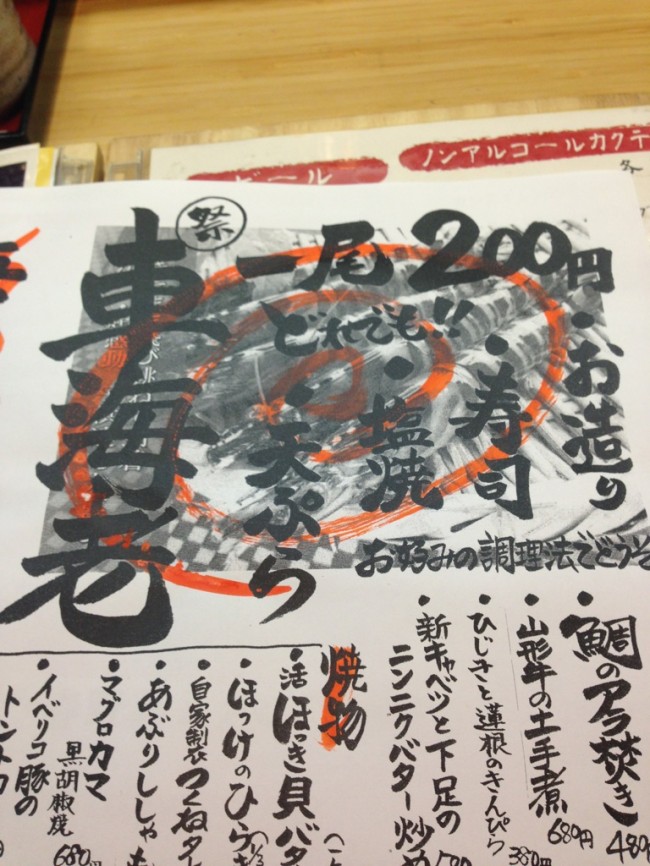 ビール
ノンアルコールカクテ
祭
車海老
一尾200円
どれでも!!
・お造り
・寿司
・塩焼
・天ぷら
お好みの調理法でどうぞ
・鯛のアラ焚き 480
・山形牛の土手煮 680円
・ひじきと蓮根のきんぴら 380
・新キャベツと下足の
ニンニクバター炒め
焼物
・活ほっき貝バ
・ほっけのひら
・自家製つくね
・あぶりししゃも
・マグロカマ
黒胡椒焼 680
・イベリコ豚の
トントロ